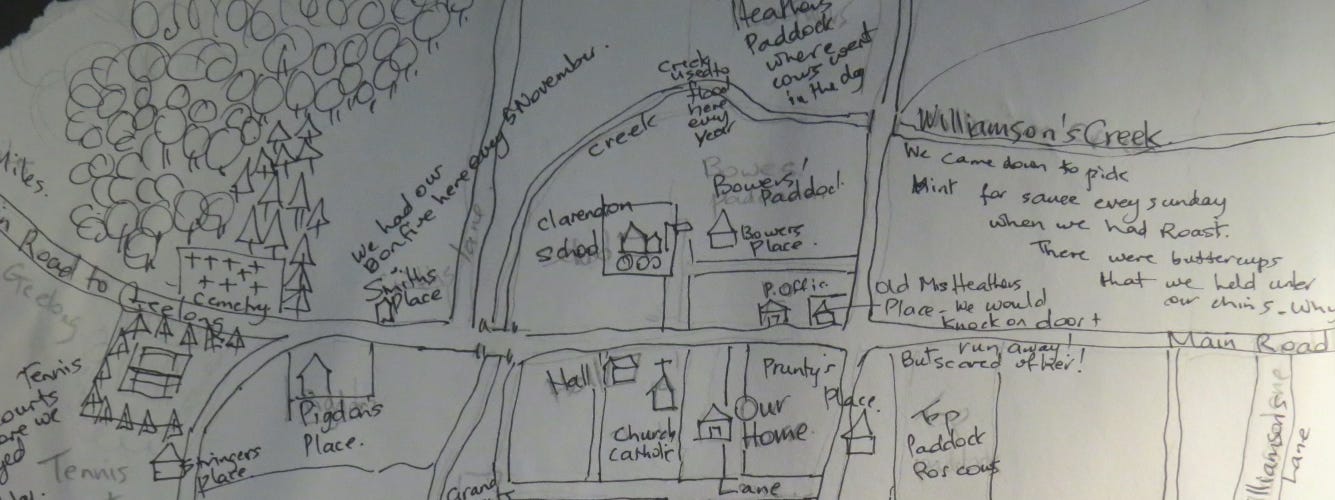 Heathers
Paddock
where
cows went
in the day
Creek
used to
flood
here
every
year
Creek
Williamson's Creek
We came down to pick
Mint for sauce every sunday
when we had Roast.
There were buttercups
that we held under
our chins - Why
Miles.
Road to Geelong
Geelong
cemetry
we had our
Bonfire here every 5 November.
Smiths
Place
Lane
Clarendon
School
Bowers'
Paddock
Bowers
Place.
P. Offic
Old Ms Heathers
Place - we would
knock on door +
run away!
But scared of her!
Main Road
Tennis
courts
we
Tennis
Stringers
Place
Pigdons
Place.
Hall
Church
Catholic
Our
Home
Prunty's
Place.
Top
Paddock
Ro's cows
Williamsons
Lane
Lane
Grand